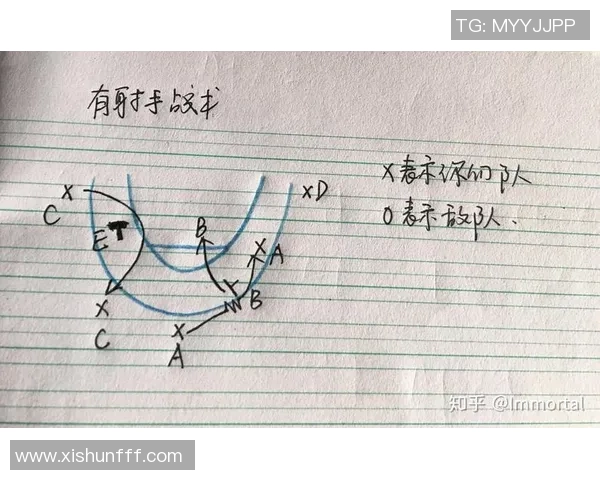 TG: MYYJJPP
有射手战术
X表示你的队
O表示敌队.
X
C
E
X
C
B
X
A
B
X
A
XD
知乎 @Immortal
www.xishunfff.com